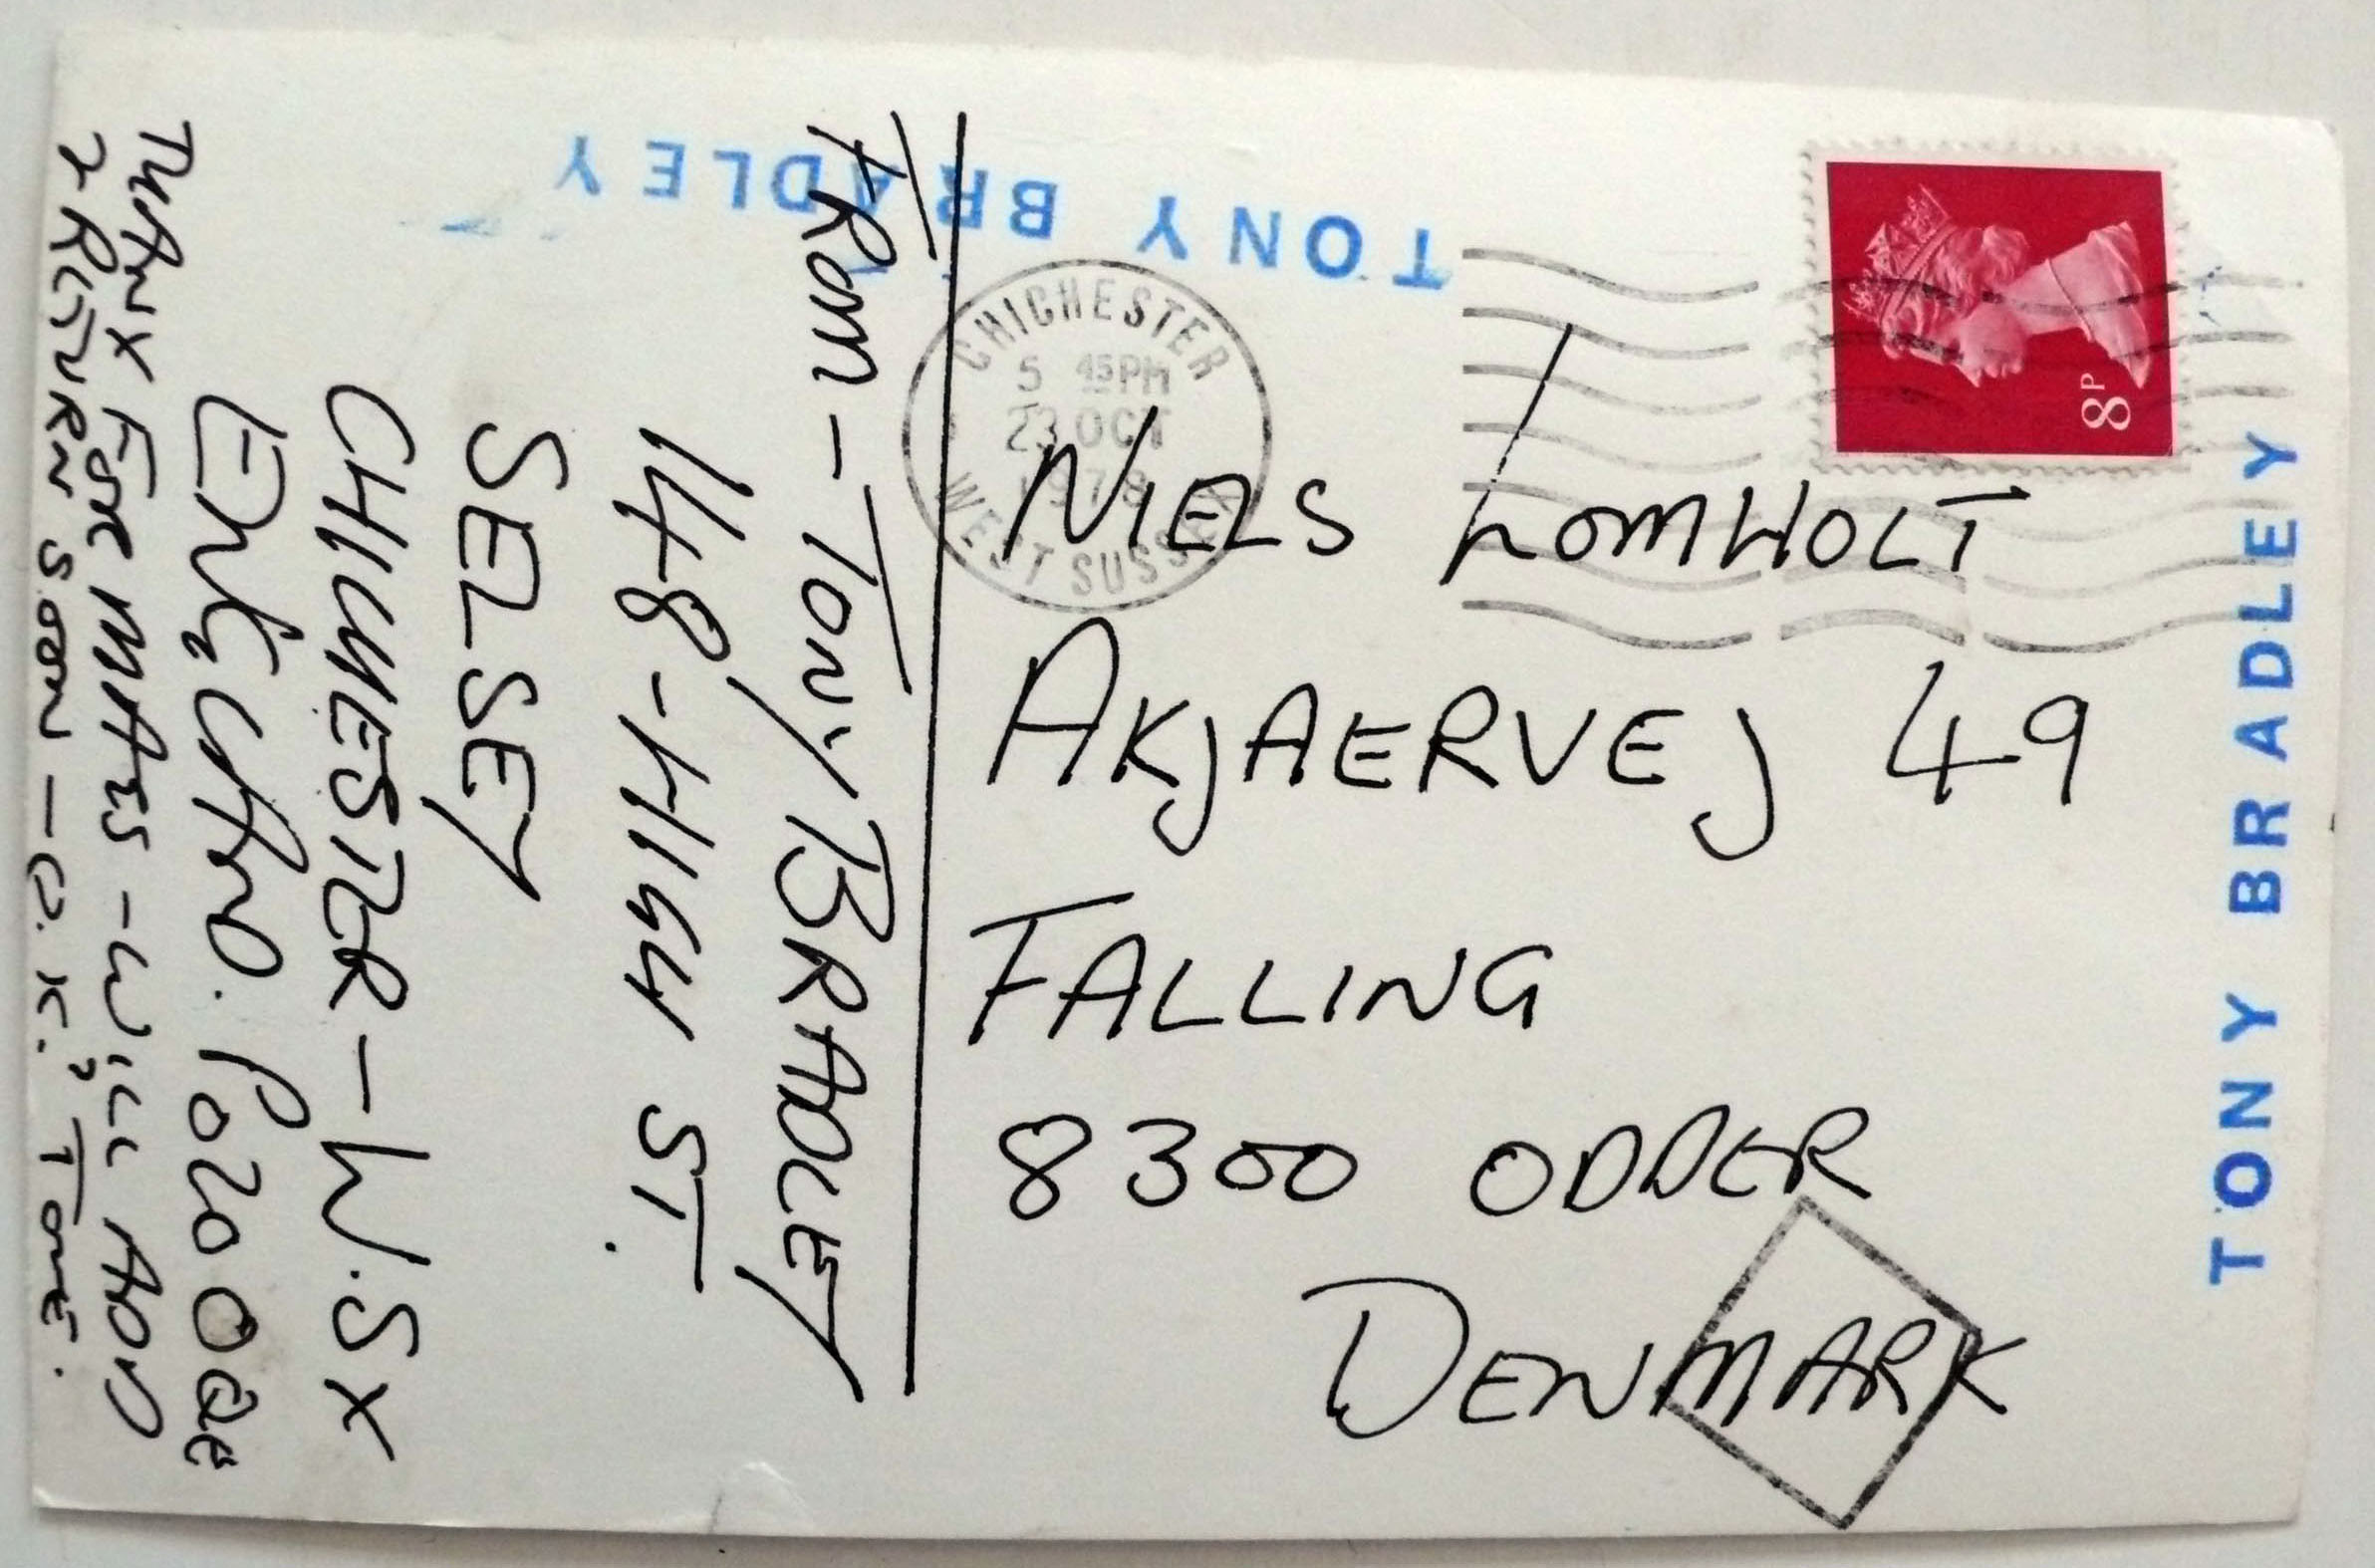 TONY BRADLEY
CHICHESTER
5 45PM
23 OCT
1978
WEST SUSSEX
8P
NIELS LOMHOLT
AKJAERVEJ 49
FALLING
8300 ODDER
DENMARK
TONY BRADLEY
FROM - TONY BRADLEY
148 - HIGH ST.
SELSEY
CHICHESTER - W. SX
ENGLAND. PO20 0QE
THANX FOR MAPES - WILL ADD
& RETURN SOON - O.K.? TONE.